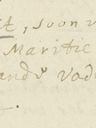 t, soon
Maritie
ands Vad